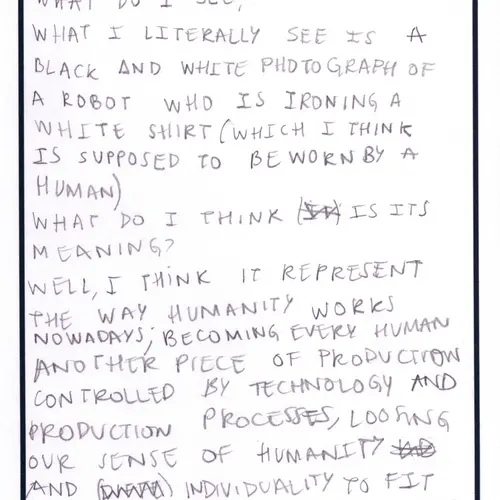 WHAT DO I SEE,
WHAT I LITERALLY SEE IS A
BLACK AND WHITE PHOTOGRAPH OF
A ROBOT WHO IS IRONING A
WHITE SHIRT (WHICH I THINK
IS SUPPOSED TO BE WORN BY A
HUMAN)
WHAT DO I THINK IS ITS
MEANING?
WELL, I THINK IT REPRESENT
THE WAY HUMANITY WORKS
NOWADAYS; BECOMING EVERY HUMAN
ANOTHER PIECE OF PRODUCTION
CONTROLLED BY TECHNOLOGY AND
PRODUCTION PROCESSES, LOOSING
OUR SENSE OF HUMANITY
AND INDIVIDUALITY TO FIT